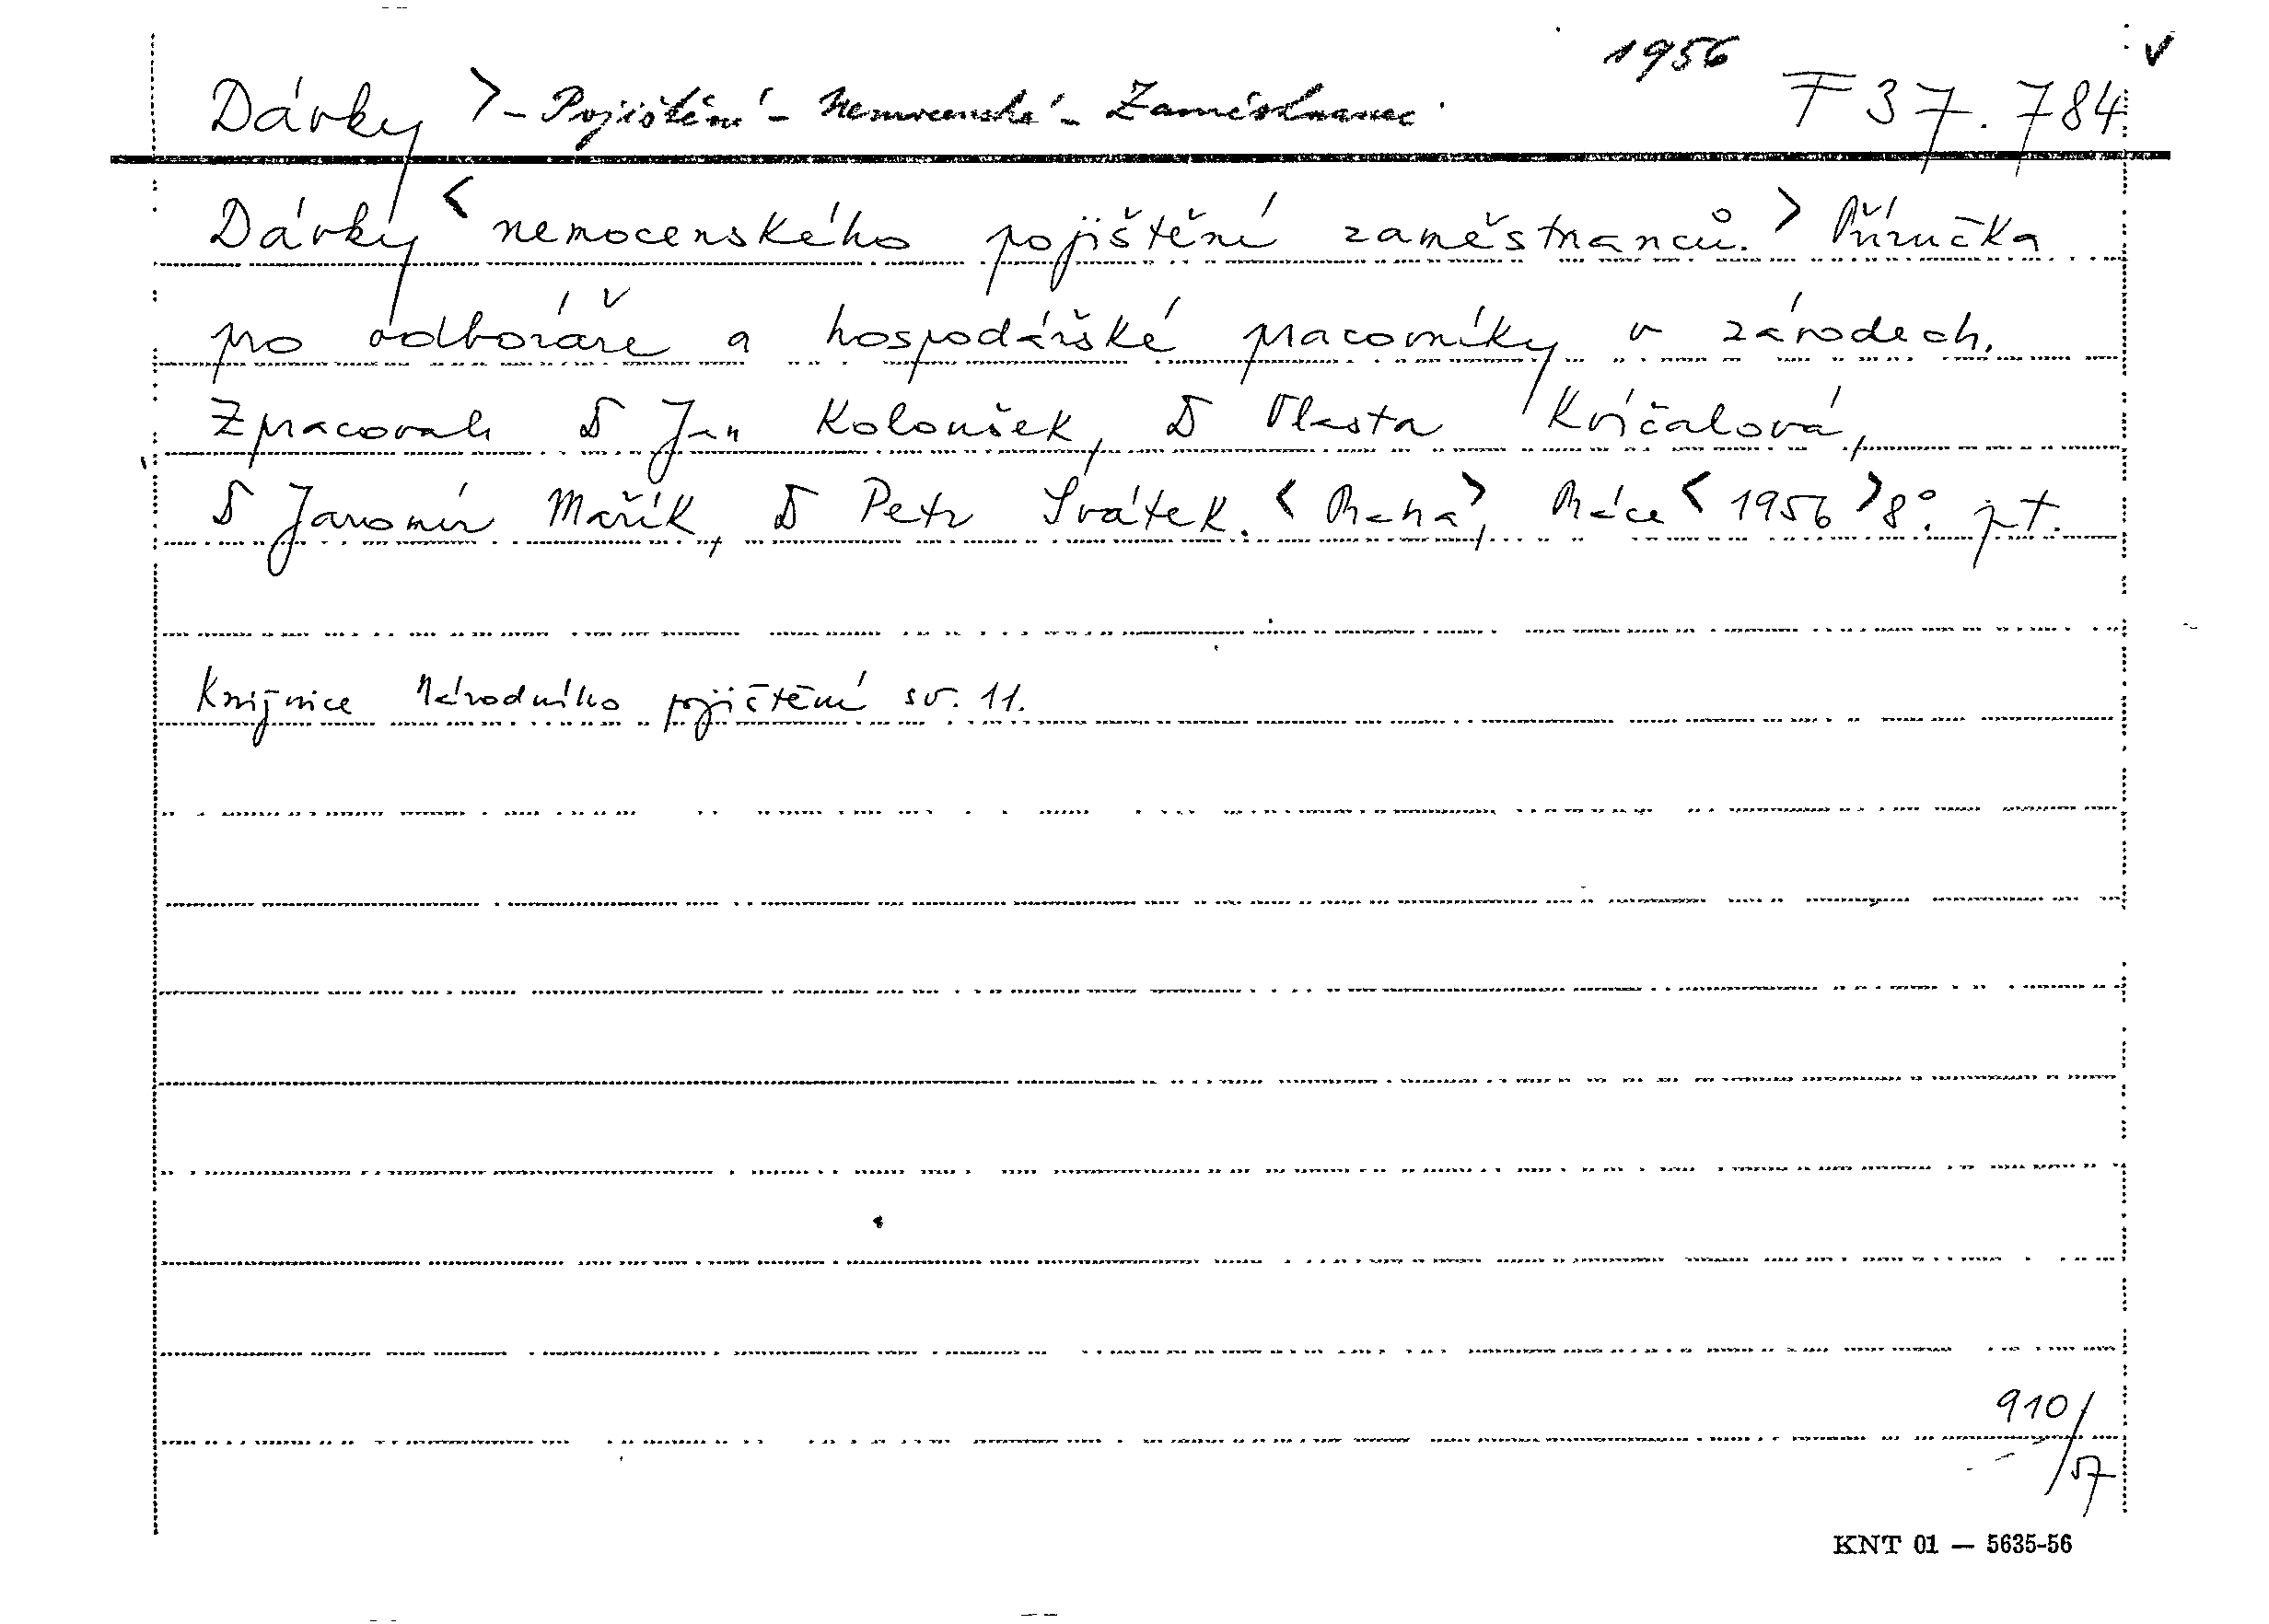 1956 v
Dávky > - Pojištění - Nemocenské - Zaměstnanec F 37.784
Dávky < nemocenského pojištění zaměstnanců. > Příručka
pro odboráře a hospodářské pracovníky v závodech.
Zpracovali D Jan Koloušek, D Vlasta Kvíčalová,
D Jaromír Mařík, D Petr Svátek. < Praha >, Práce < 1956 > 8°. pt.
Knižnice Národního pojištění sv. 11.
910/57
KNT 01 — 5635-56